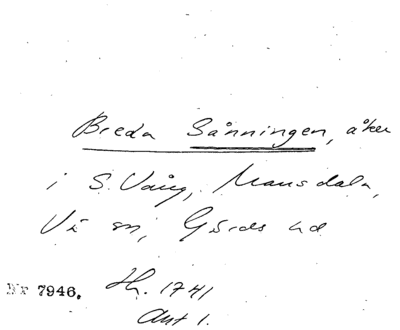 Breda Sånningen, åker
i S. Vång, Mansdala,
Vä sn, Gärds hd
Nr 7946. Hh. 1741
Akt 1.